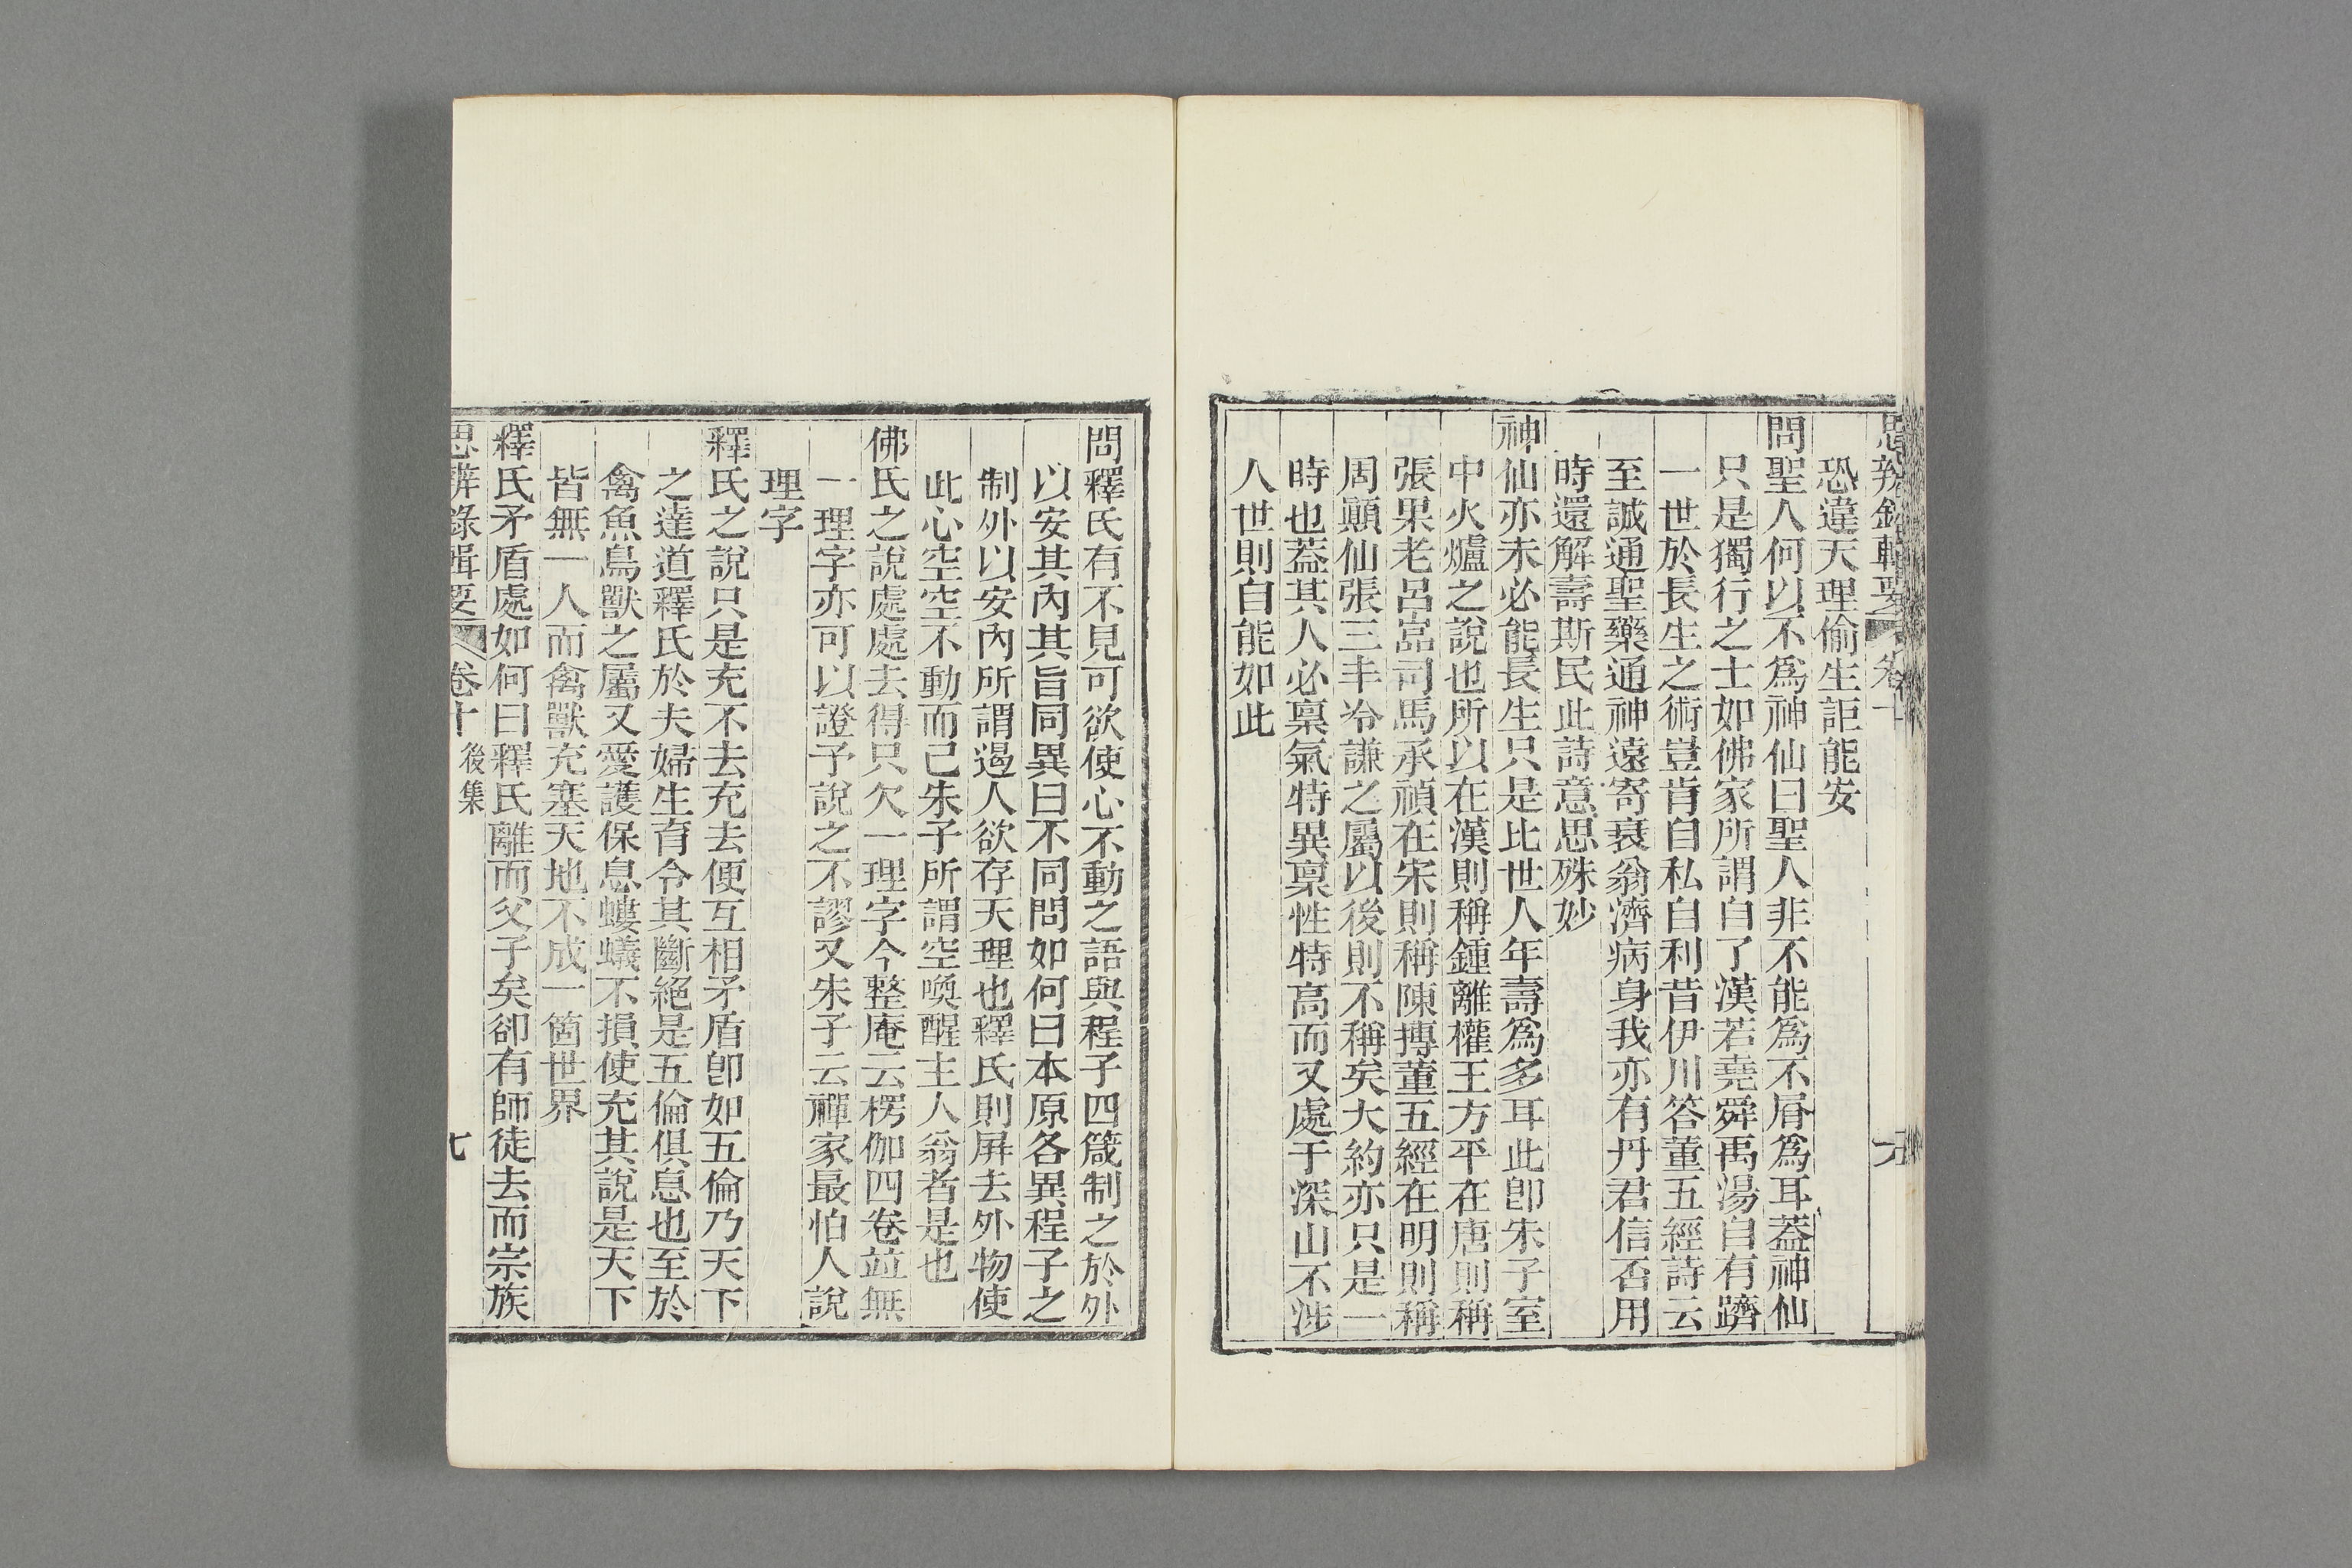 思辨錄輯要 卷十 六
恐違天理偷生詎能安
問聖人何以不爲神仙曰聖人非不能爲不屑爲耳葢神仙
只是獨行之士如佛家所謂自了漢若堯舜禹湯自有躋
一世於長生之術豈肯自私自利昔伊川答董五經詩云
至誠通聖藥通神遠寄衰翁濟病身我亦有丹君信否用
時還解壽斯民此詩意思殊妙
神仙亦未必能長生只是比世人年壽爲多耳此卽朱子室
中火爐之說也所以在漢則稱鍾離權王方平在唐則稱
張果老呂嵓司馬承禎在宋則稱陳摶董五經在明則稱
周顚仙張三丰冷謙之屬以後則不稱矣大約亦只是一
時也葢其人必稟氣特異稟性特高而又處于深山不涉
人世則自能如此
問釋氏有不見可欲使心不動之語與程子四箴制之於外
以安其內其旨同異曰不同問如何曰本原各異程子之
制外以安內所謂遏人欲存天理也釋氏則屏去外物使
此心空空不動而已朱子所謂空喚醒主人翁者是也
佛氏之說處處去得只欠一理字今整庵云楞伽四卷竝無
一理字亦可以證予說之不謬又朱子云禪家最怕人說
理字
釋氏之說只是充不去充去便互相矛盾卽如五倫乃天下
之達道釋氏於夫婦生育令其斷絕是五倫俱息也至於
禽魚鳥獸之屬又愛護保息螻蟻不損使充其說是天下
皆無一人而禽獸充塞天地不成一箇世界
釋氏矛盾處如何曰釋氏離而父子矣卻有師徒去而宗族
思辨錄輯要 卷十 後集 七